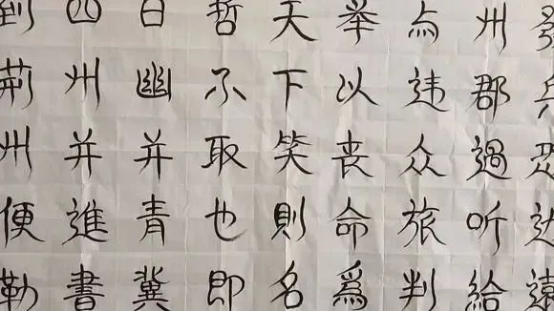 發兵恐边遠
州郡過听給
与違众旅判
举以丧命爲
天下笑則名
哲不取也即
日幽并青冀
四州并進書
到荊州便勒